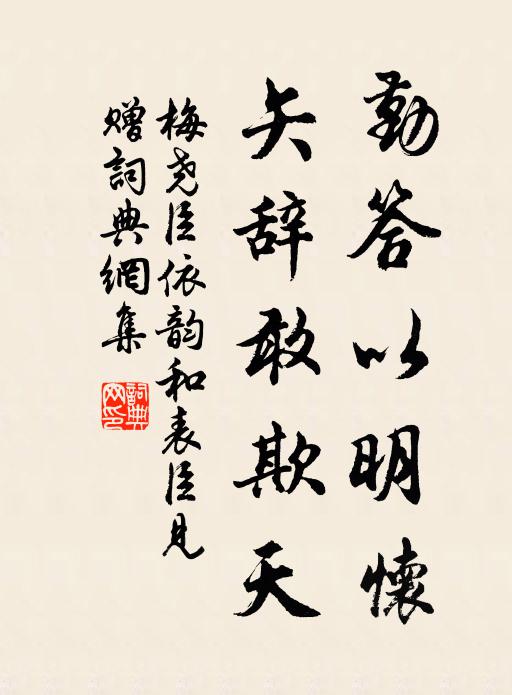 勤答以明懷
矢辞敢欺天
梅尧臣依韵和表臣见
赠詞典網集
詞典網印